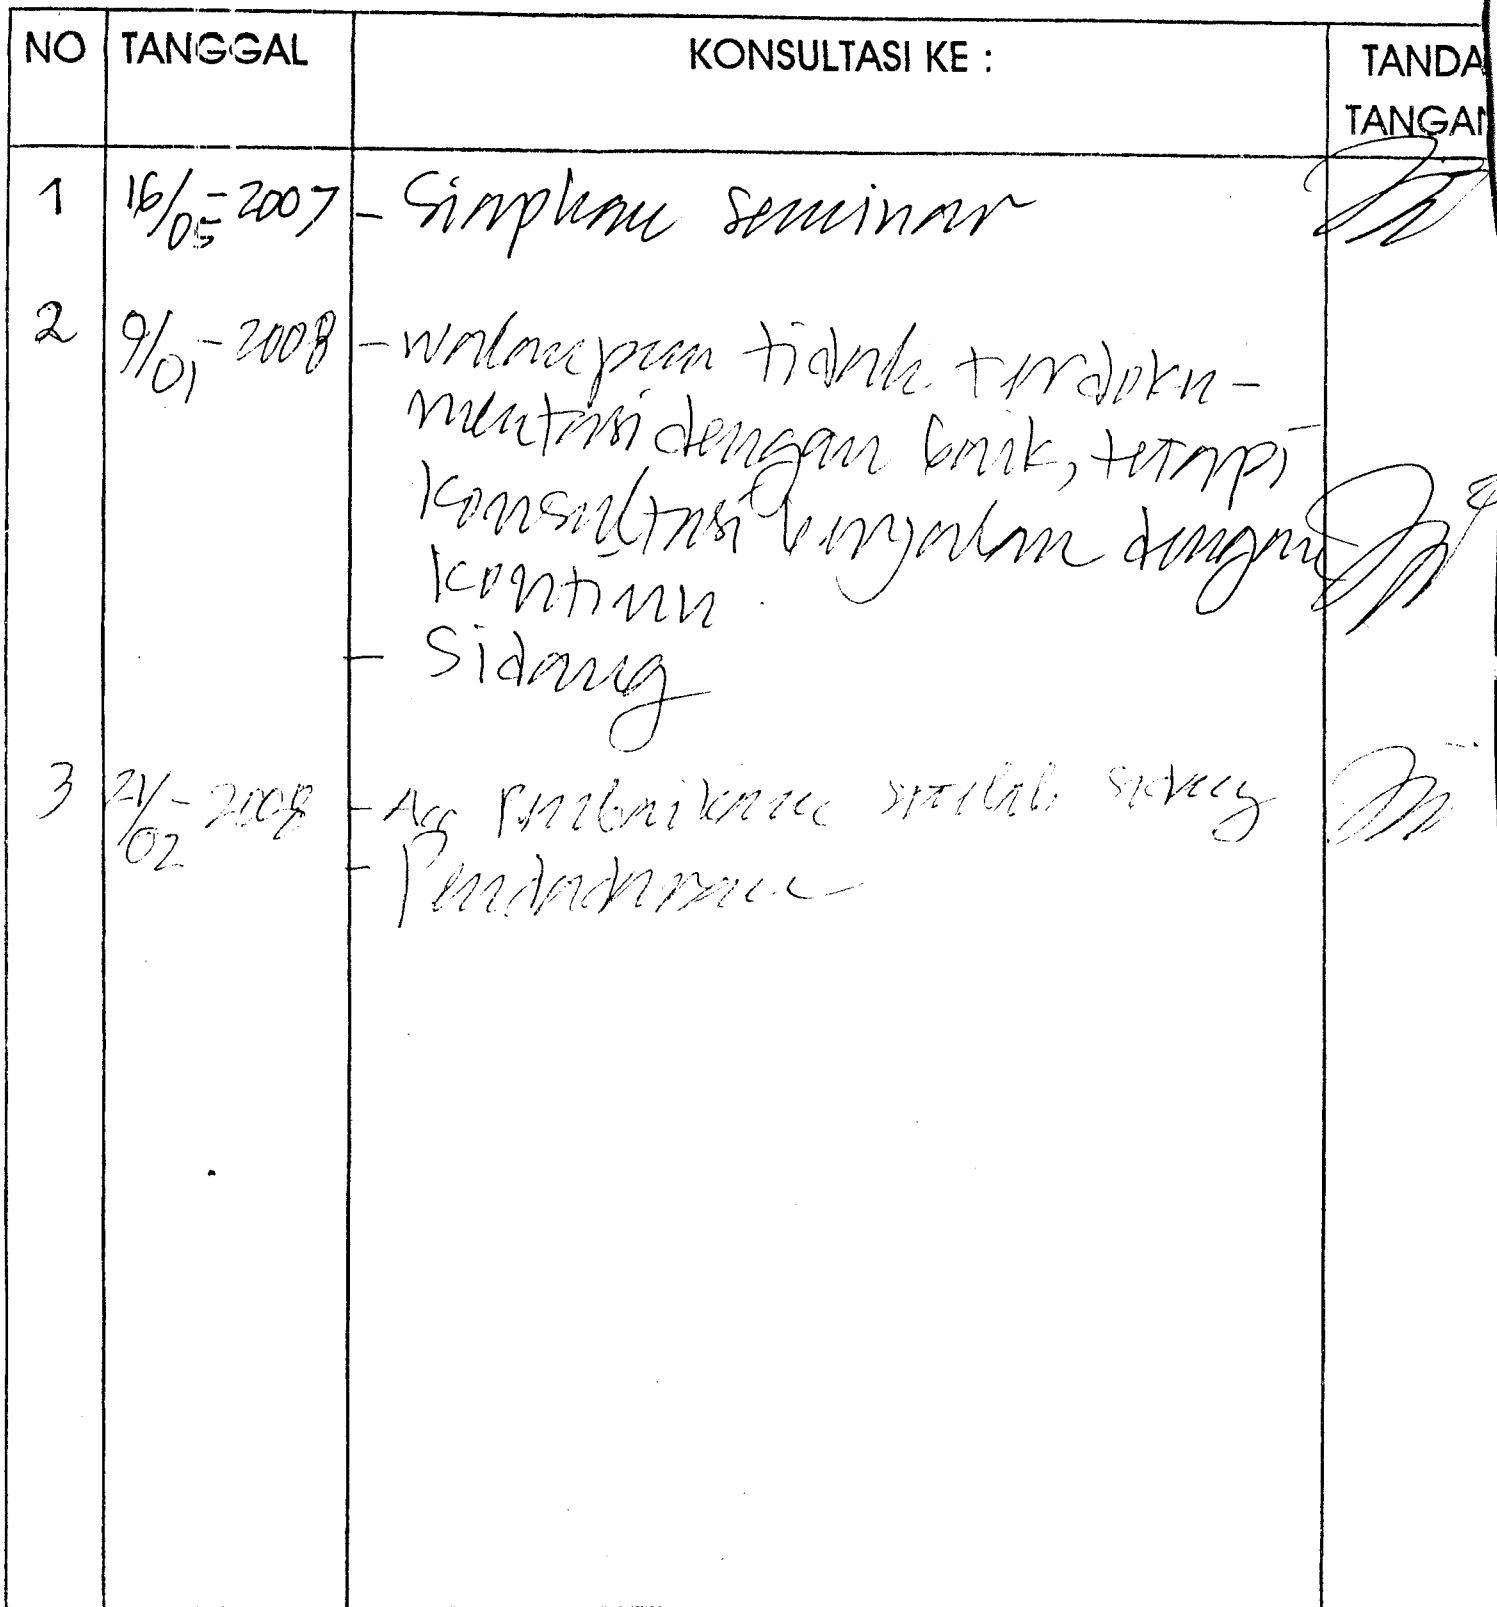 NO TANGGAL KONSULTASI KE : TANDA
TANGAN
1 16/05-2007 - Siapkan seminar
2 9/01-2008 - walaupun tidak terdoku-
mentasi dengan baik, tetapi
konsultasi berjalan dengan
kontinu.
- Sidang
3 21/02-2008 - Acc perbaikan setelah sidang
- Pendadaran